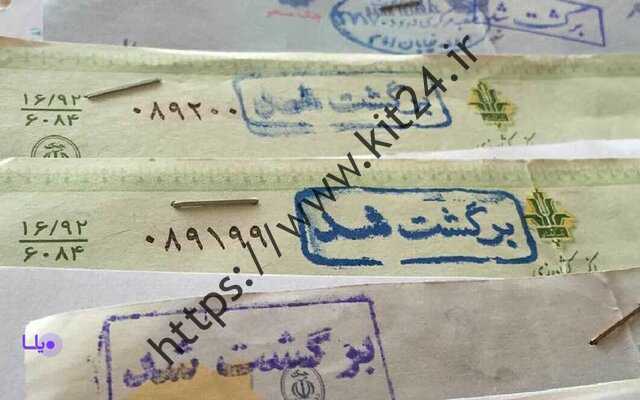 برگشت شد
۱۶/۹۲
۶۰۸۴
۰۸۹۲۰۰
برگشت شد
۱۶/۹۲
۶۰۸۴
۰۸۹۱۹۹
برگشت شد
بانک کشاورزی
برگشت شد
یلــدا
https://www.kit24.ir